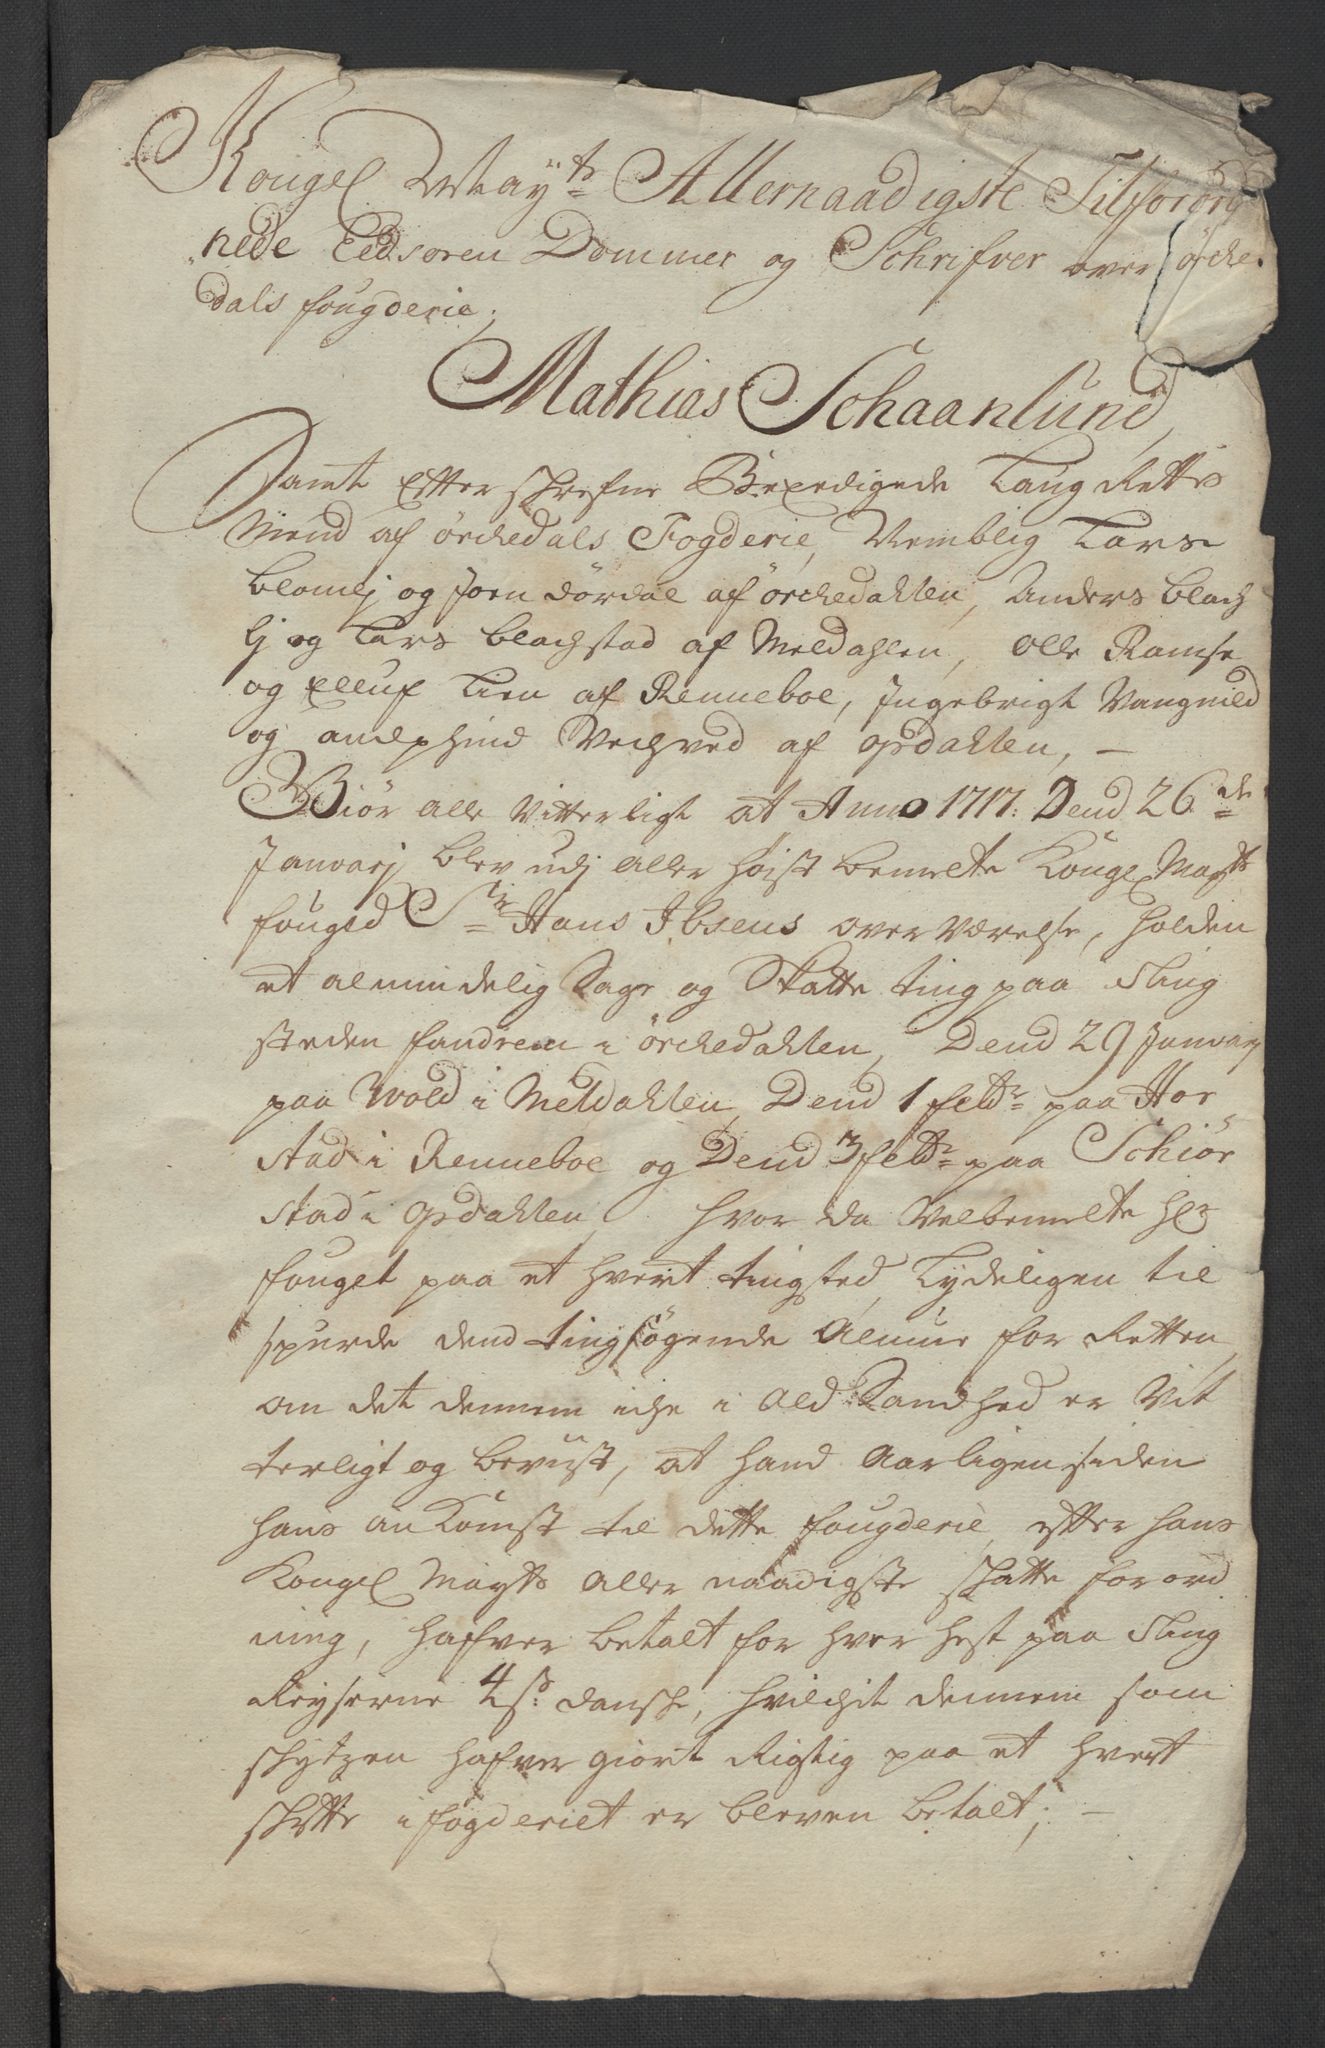 Kongel Mayts Allernaadigste Tilforord
nede Eedsoren Dommer og Schrifver over Örche
dals fougderie,
Mathias Schaanlund,
Samt Effterschrefne Beeedigede Laug Rettis
Mend af Örchedals Fogderie, Nemblig Lars
blomlj og Joen Dördal af Örchedahlen, Anders blach
lj og Lars blachstad af Meldahlen, Olle Ramse
og Elluf Lien af Renneboe, Ingebrigt Vangnild
og Vechved af Opdahlen, —
Giör alle Vitterligt at Anno 1717: Dend 26de
Januarj blev udj aller höist bemelte Kongel Mayts
fouged Sr Hans Ibsens overværelse, holden
et almindelig Sage og Skatte ting paa Ting
steden fandrem i Örchedahlen, Dend 29 Januarj
paa Wold i Meldahlen, Dend 1 febr: paa Hor
stad i Renneboe og Dend 3 febr: paa Schiör
stad i Opdahlen, hvor da Velbemelte Hr
fouget paa et hvert tingsted, Tydeligen til
spurde dend tingsögende Almue for Retten,
om det dennem iche i Ald Sandhed er Vit
terligt og bevust, at hand Aarligen siden
hans an Komst til dette fougderie, efter hans
Kongel Mayts Aller naadigste skatte forord
ning, hafver betalt for hver hest paa Ting
Reyserne 4 s: danske, hvilchet dennem som
skytzen hafver giort Rigtig paa et hvert
skifte i fogderiet er bleven betalt; —